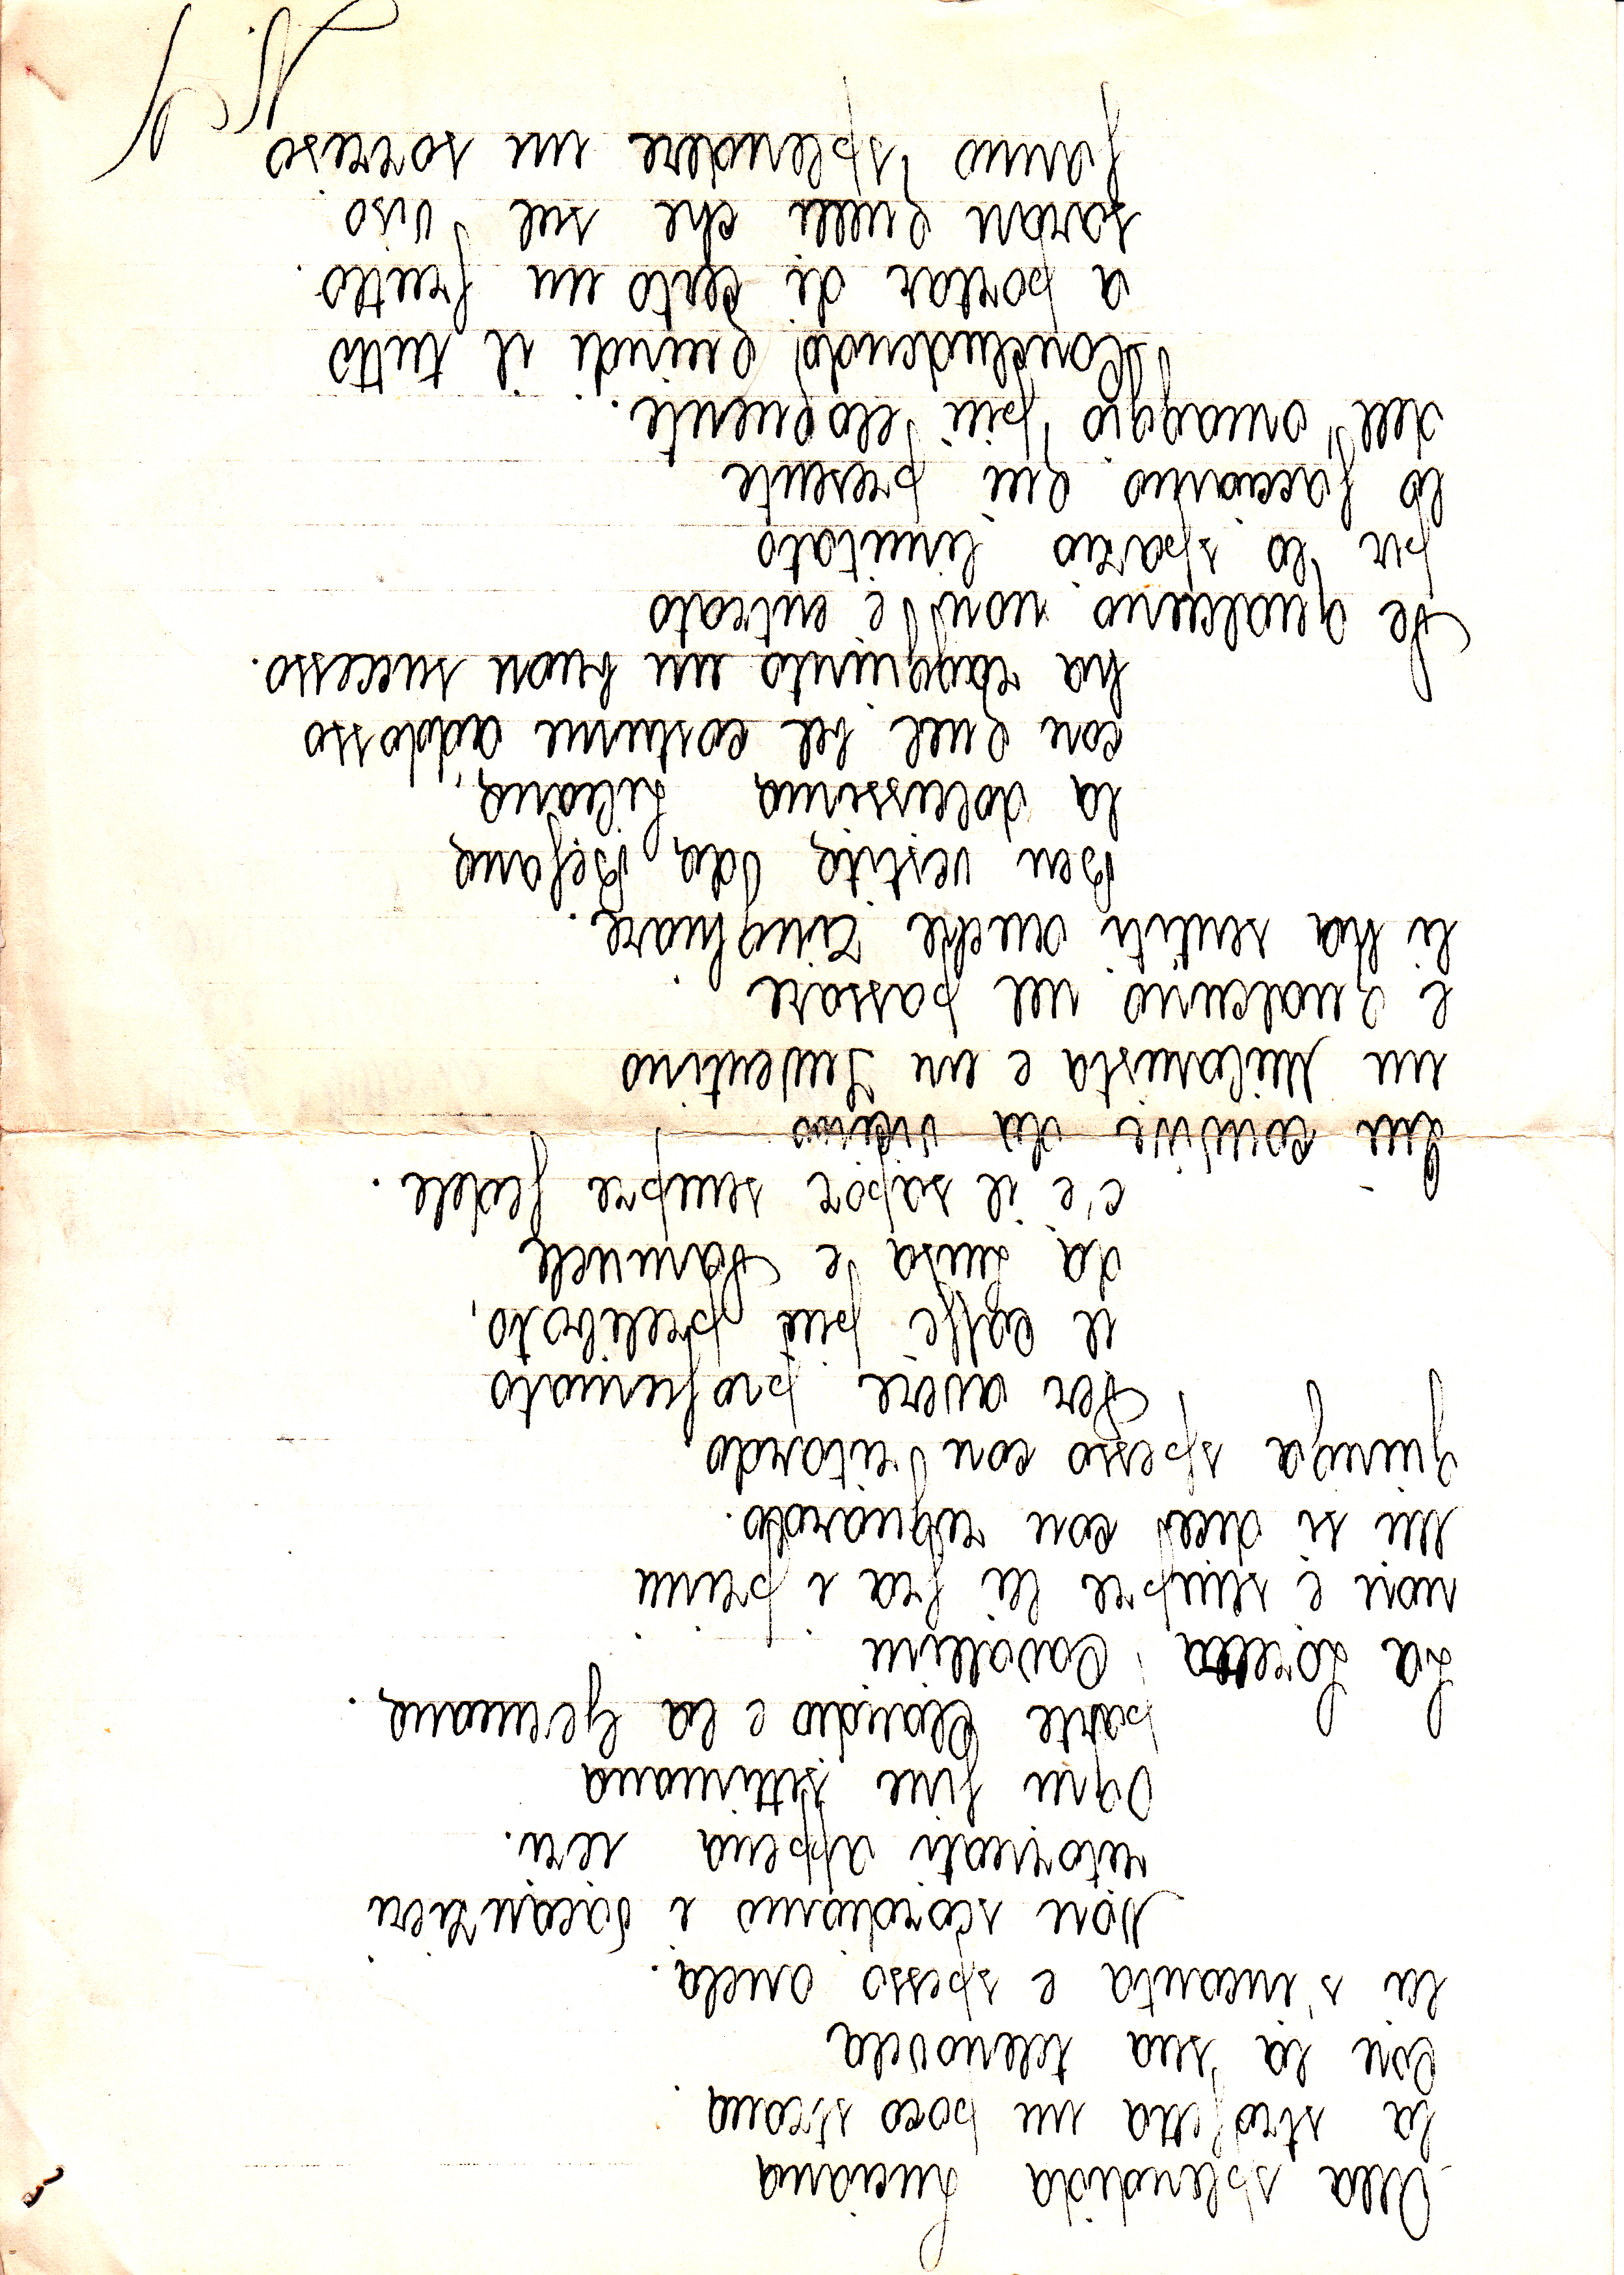 Alla splendida Luciana
la strofetta un poco strana.
Con la sua telenovela
lei s'incanta e spesso anela.
Non scordiamo i vacanzieri
ritornati appena ieri.
Ogni fine settimana
parte Claudio e la Germana.
La Loretta Cavallini
non è sempre lei fra i primi
Mi si dice con riguardo.
giunga spesso con ritardo.
Per avere profumato
il caffè più prelibato,
da Luisa e Samuele
c'è il sapor sempre fedele.
Qui convive da vicino
un Milanista e un Juventino
e qualcuno nel passare
li ha sentiti anche ringhiare.
Ben vestita da Befana
la dolcissima Liliana,
con quel bel costume addosso
ha raggiunto un buon successo.
Se qualcuno non è entrato
per lo spazio limitato
lo facciamo quì presente
dell'omaggio più eloquente.
Concludendo quindi il tutto
a portar di certo un frutto.
saran quelli che sul viso
fanno splendere un sorriso